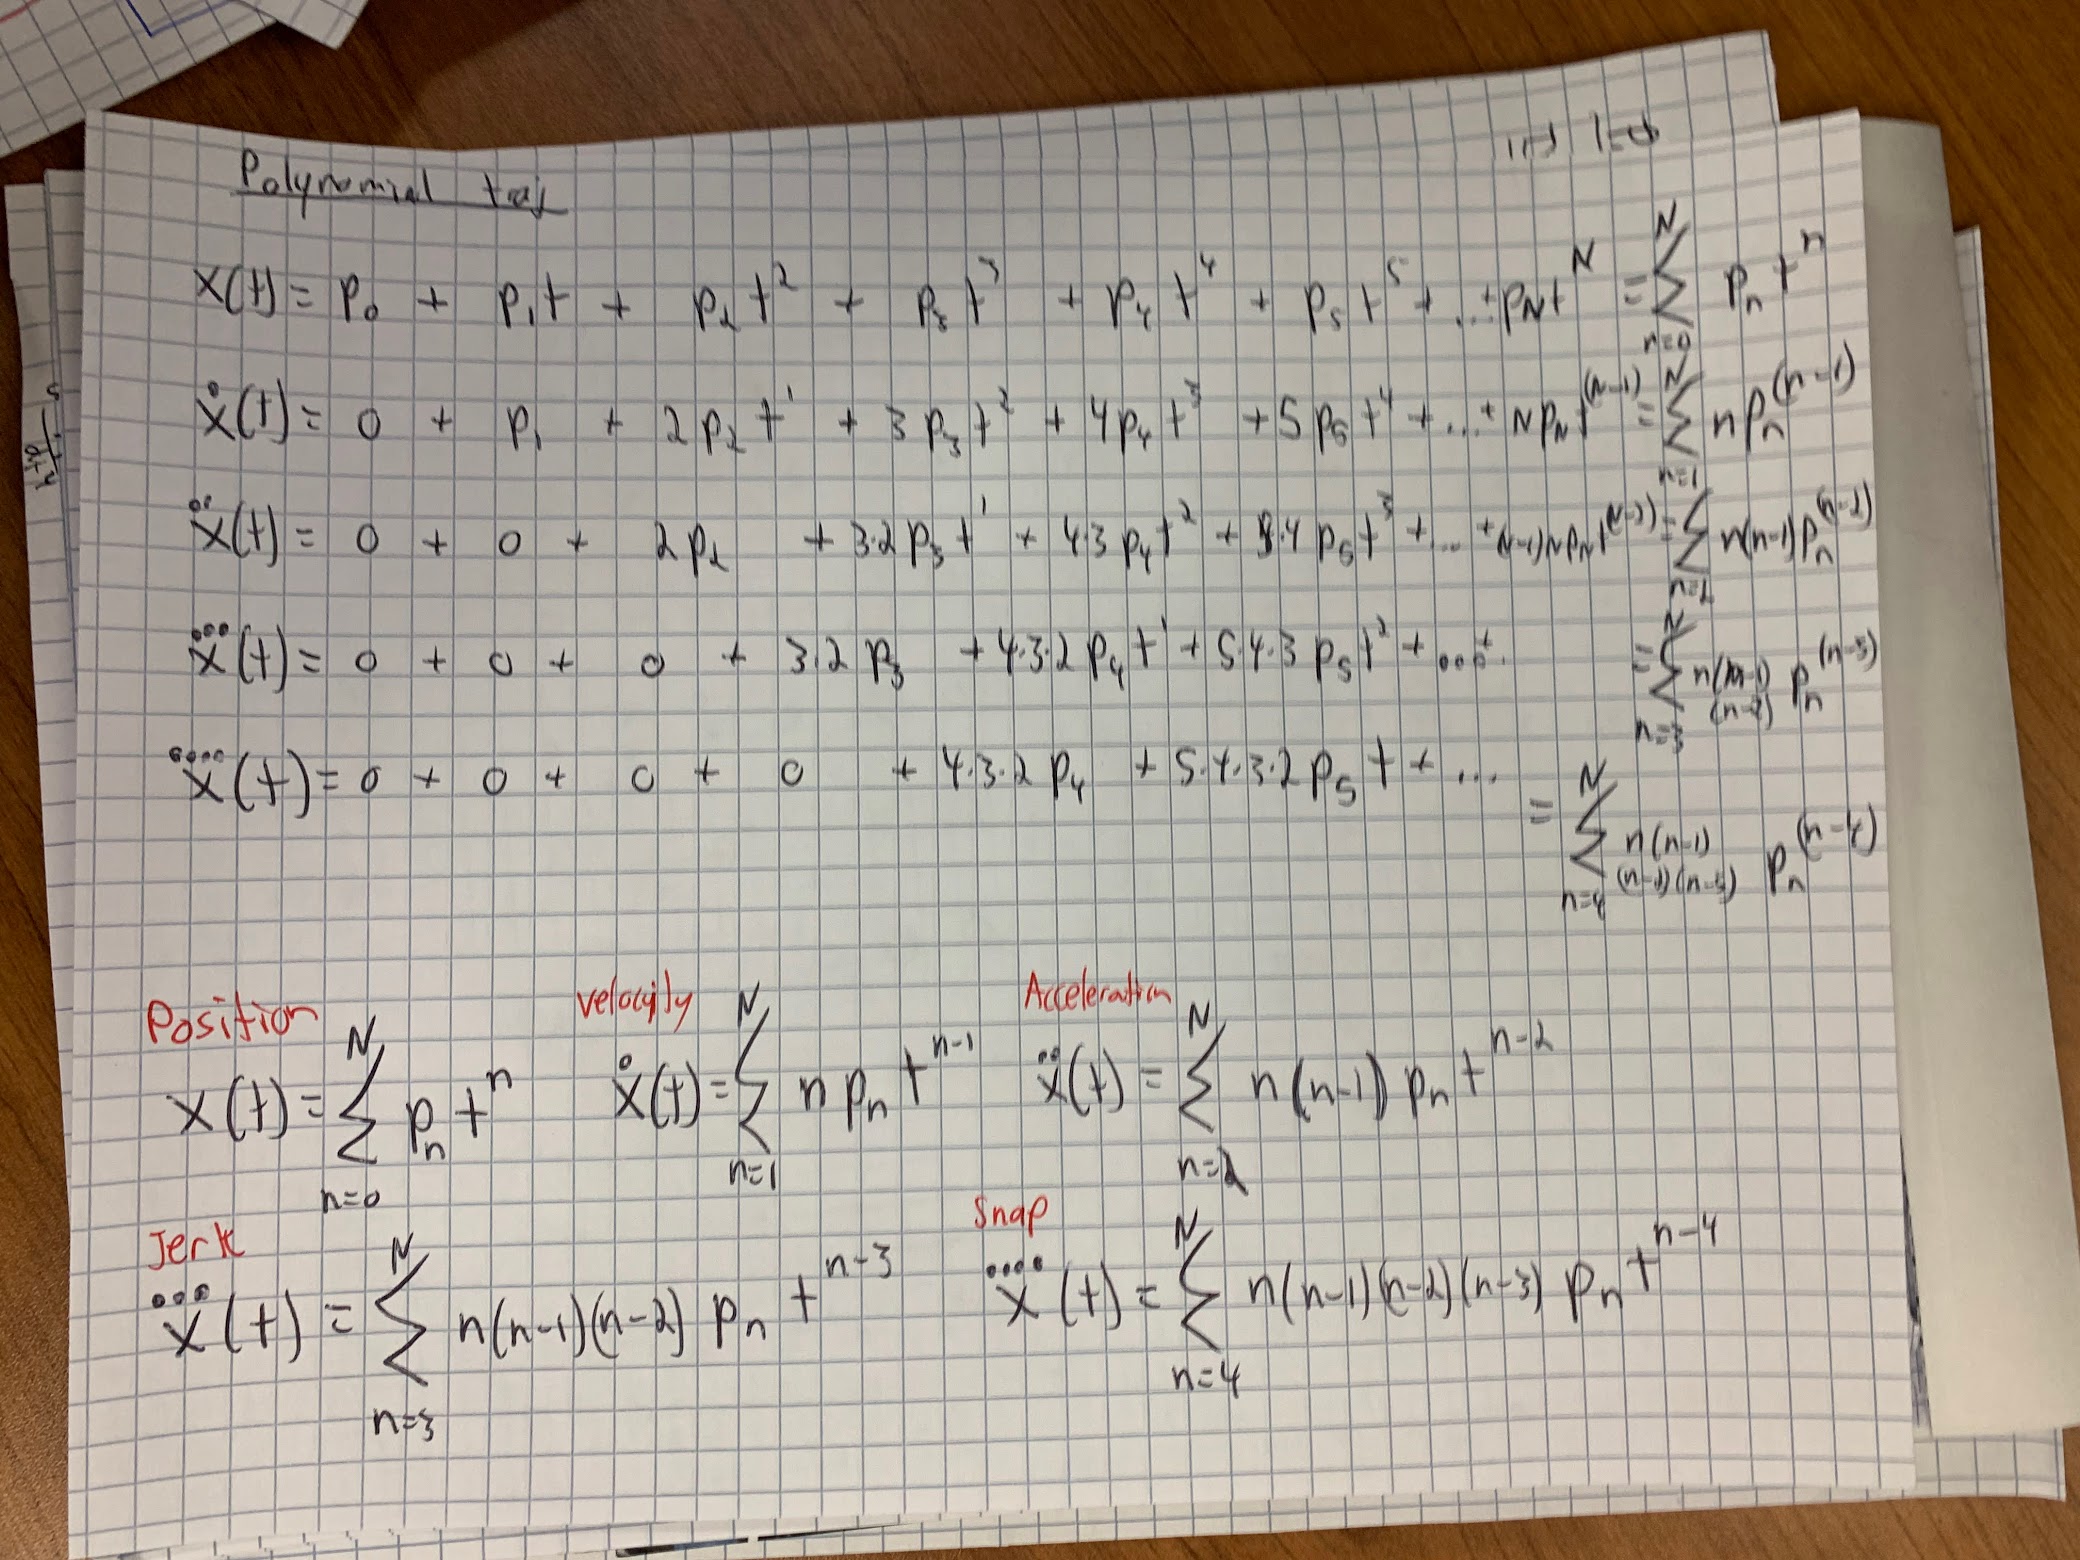 Polynomial traj
x(t) = p₀ + p₁t + p₂t² + p₃t³ + p₄t⁴ + p₅t⁵ + ... + p_N t^N = Σ_{n=0}^{N} p_n t^n
ẋ(t) = 0 + p₁ + 2p₂t¹ + 3p₃t² + 4p₄t³ + 5p₅t⁴ + ... + N p_N t^(N-1) = Σ_{n=1}^{N} n p_n^(n-1)
ẍ(t) = 0 + 0 + 2p₂ + 3·2p₃t¹ + 4·3p₄t² + 5·4p₅t³ + ... + (N-1)N p_N t^(N-2) = Σ_{n=2}^{N} n(n-1)p_n^(n-2)
x⃛(t) = 0 + 0 + 0 + 3·2p₃ + 4·3·2p₄t¹ + 5·4·3p₅t² + ... + = Σ_{n=3}^{N} n(n-1)(n-2) p_n^(n-3)
x⃜(t) = 0 + 0 + 0 + 0 + 4·3·2p₄ + 5·4·3·2p₅t + ... = Σ_{n=4}^{N} n(n-1)(n-2)(n-3) p_n^(n-4)
Position
x(t) = Σ_{n=0}^{N} p_n t^n
Velocity
ẋ(t) = Σ_{n=1}^{N} n p_n t^{n-1}
Acceleration
ẍ(t) = Σ_{n=2}^{N} n(n-1) p_n t^{n-2}
Jerk
x⃛(t) = Σ_{n=3}^{N} n(n-1)(n-2) p_n t^{n-3}
Snap
x⃜(t) = Σ_{n=4}^{N} n(n-1)(n-2)(n-3) p_n t^{n-4}